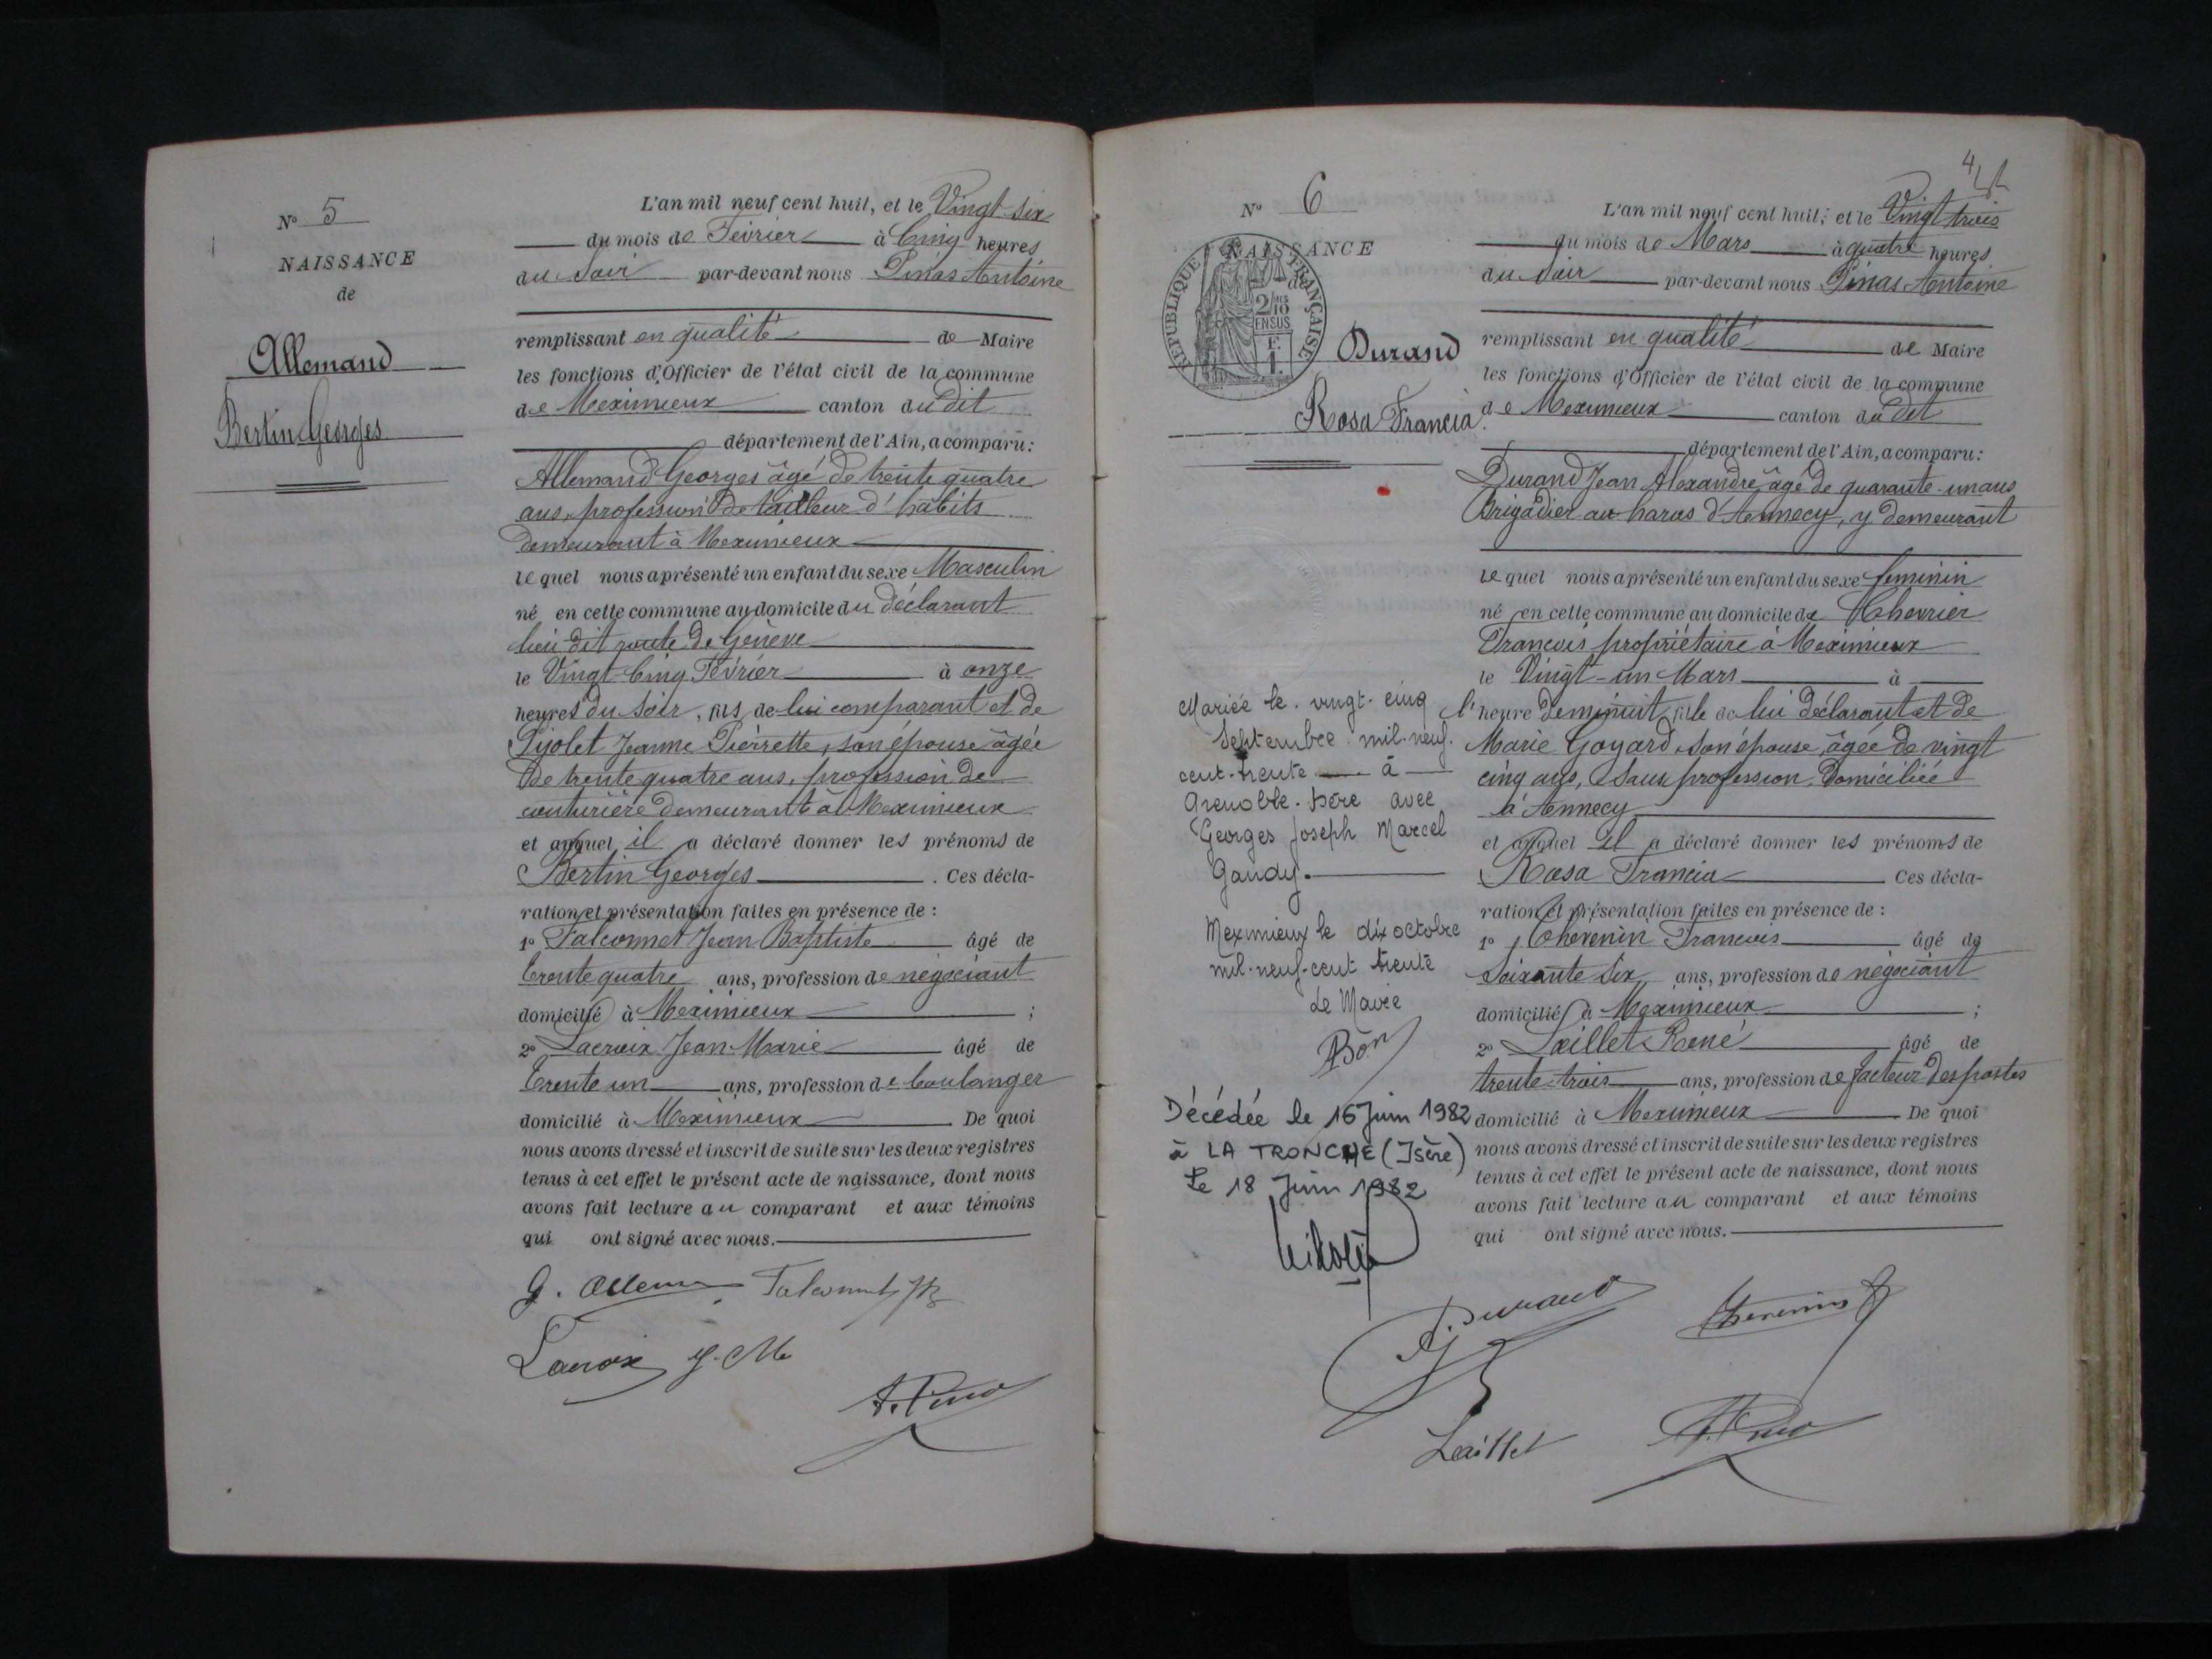 N° 5
NAISSANCE
de
Allemand
Bertin Georges
L'an mil neuf cent huit, et le Vingt-six
du mois de Février à Cinq heures
du Soir par-devant nous Pinas Antoine
remplissant en qualité de Maire
les fonctions d'Officier de l'état civil de la commune
de Meximieux canton du dit
département de l'Ain, a comparu:
Allemand Georges âgé de trente quatre
ans, profession de tailleur d'habits
demeurant à Meximieux
lequel nous a présenté un enfant du sexe Masculin
né en cette commune au domicile du déclarant
lieu dit route de Genève
le Vingt-Cinq Février à onze
heures du soir, fils de lui comparant et de
Pijolet Jeanne Pierrette, son épouse âgée
de trente quatre ans, profession de
couturière demeurant à Meximieux
et auquel il a déclaré donner les prénoms de
Bertin Georges. Ces décla-
ration et présentation faites en présence de :
1° Falconnet Jean Baptiste âgé de
trente quatre ans, profession de négociant
domicilié à Meximieux ;
2° Lacroix Jean-Marie âgé de
trente un ans, profession de boulanger
domicilié à Meximieux De quoi
nous avons dressé et inscrit de suite sur les deux registres
tenus à cet effet le présent acte de naissance, dont nous
avons fait lecture au comparant et aux témoins
qui ont signé avec nous.
G. Allemand Falconnet JB
Lacroix J. M.
4
N° 6
NAISSANCE
de
RÉPUBLIQUE FRANÇAISE
2/10 EN SUS
Durand
Rosa Francia.
L'an mil neuf cent huit, et le Vingt trois
du mois de Mars à quatre heures
du Soir par-devant nous Pinas Antoine
remplissant en qualité de Maire
les fonctions d'Officier de l'état civil de la commune
de Meximieux canton du dit
département de l'Ain, a comparu:
Durand Jean Alexandre âgé de quarante-un ans
Brigadier au haras d'Annecy, y demeurant
lequel nous a présenté un enfant du sexe féminin
né en cette commune au domicile de Chevrier
François propriétaire à Meximieux
le Vingt-un Mars à
l'heure de minuit, fille de lui déclarant et de
Marie Goyard, son épouse, âgée de vingt
cinq ans, sans profession, domiciliée
à Annecy
et auquel il a déclaré donner les prénoms de
Rosa Francia Ces décla-
ration et présentation faites en présence de :
1° Thevenin François âgé de
soixante six ans, profession de négociant
domicilié à Meximieux ;
2° Laillet René âgé de
trente-trois ans, profession de facteur des postes
domicilié à Meximieux De quoi
nous avons dressé et inscrit de suite sur les deux registres
tenus à cet effet le présent acte de naissance, dont nous
avons fait lecture au comparant et aux témoins
qui ont signé avec nous.
Mariée le vingt-cinq
Septembre mil-neuf-
cent-trente à
Grenoble. Isère avec
Georges Joseph Marcel
Gaudy.
Meximieux le dix octobre
mil-neuf-cent trente
Le Maire
Décédée le 16 Juin 1982
à LA TRONCHE (Isère)
Le 18 Juin 1982
A. Durand Thevenin
Laillet